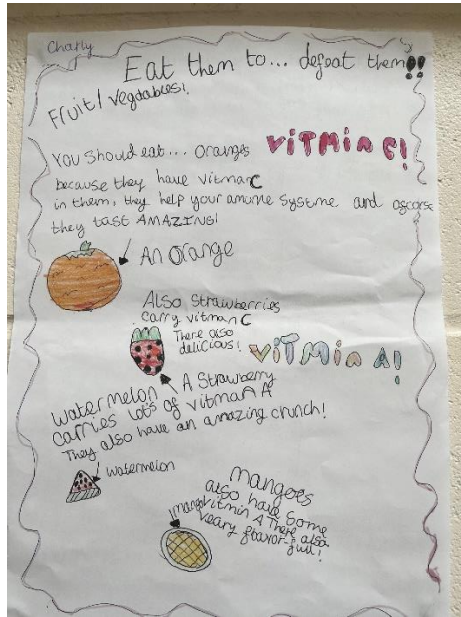 Charly
Eat them to... defeat them!!
Fruit/vegetables!
You should eat... oranges
VITMIN C!
because they have vitman C
in them, they help your amune systme and ofcorse
they tast AMAZING!
An orange
Also Strawberries
carry vitman C
There also
delicious!
VITMIN A!
A Strawberry
Watermelon
carries lots of vitman A
They also have an amazing crunch!
watermelon
mangoes
also have some
vitmin A There also
veary flavor-full!
mango